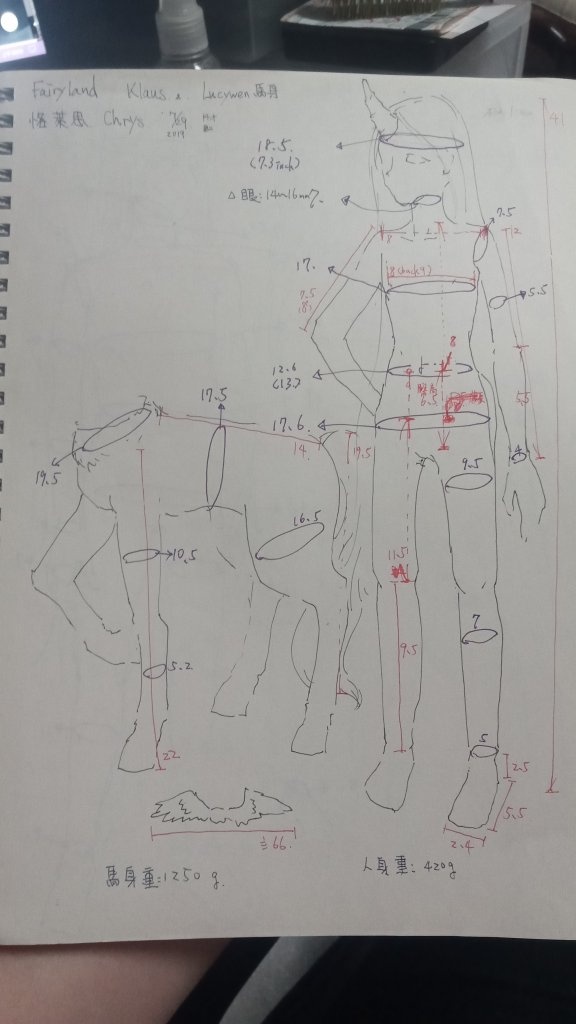 Fairyland Klaus & Lucywen馬身
洛萊恩 Chrys 2019
18.5.
(7.3 inch)
△眼:14~16mm?
7.5
12
41
8
17.
8 (back 9)
7.5
5.5
8
12.6
(13.)
6.5
5.5
17.5
17.6
14.
19.5
4
19.5
9.5
16.5
10.5
11.5
9.5
7
5.2
5
2.5
22
5.5
2.4
≒66.
馬身重:1250 g.
人身重: 420g